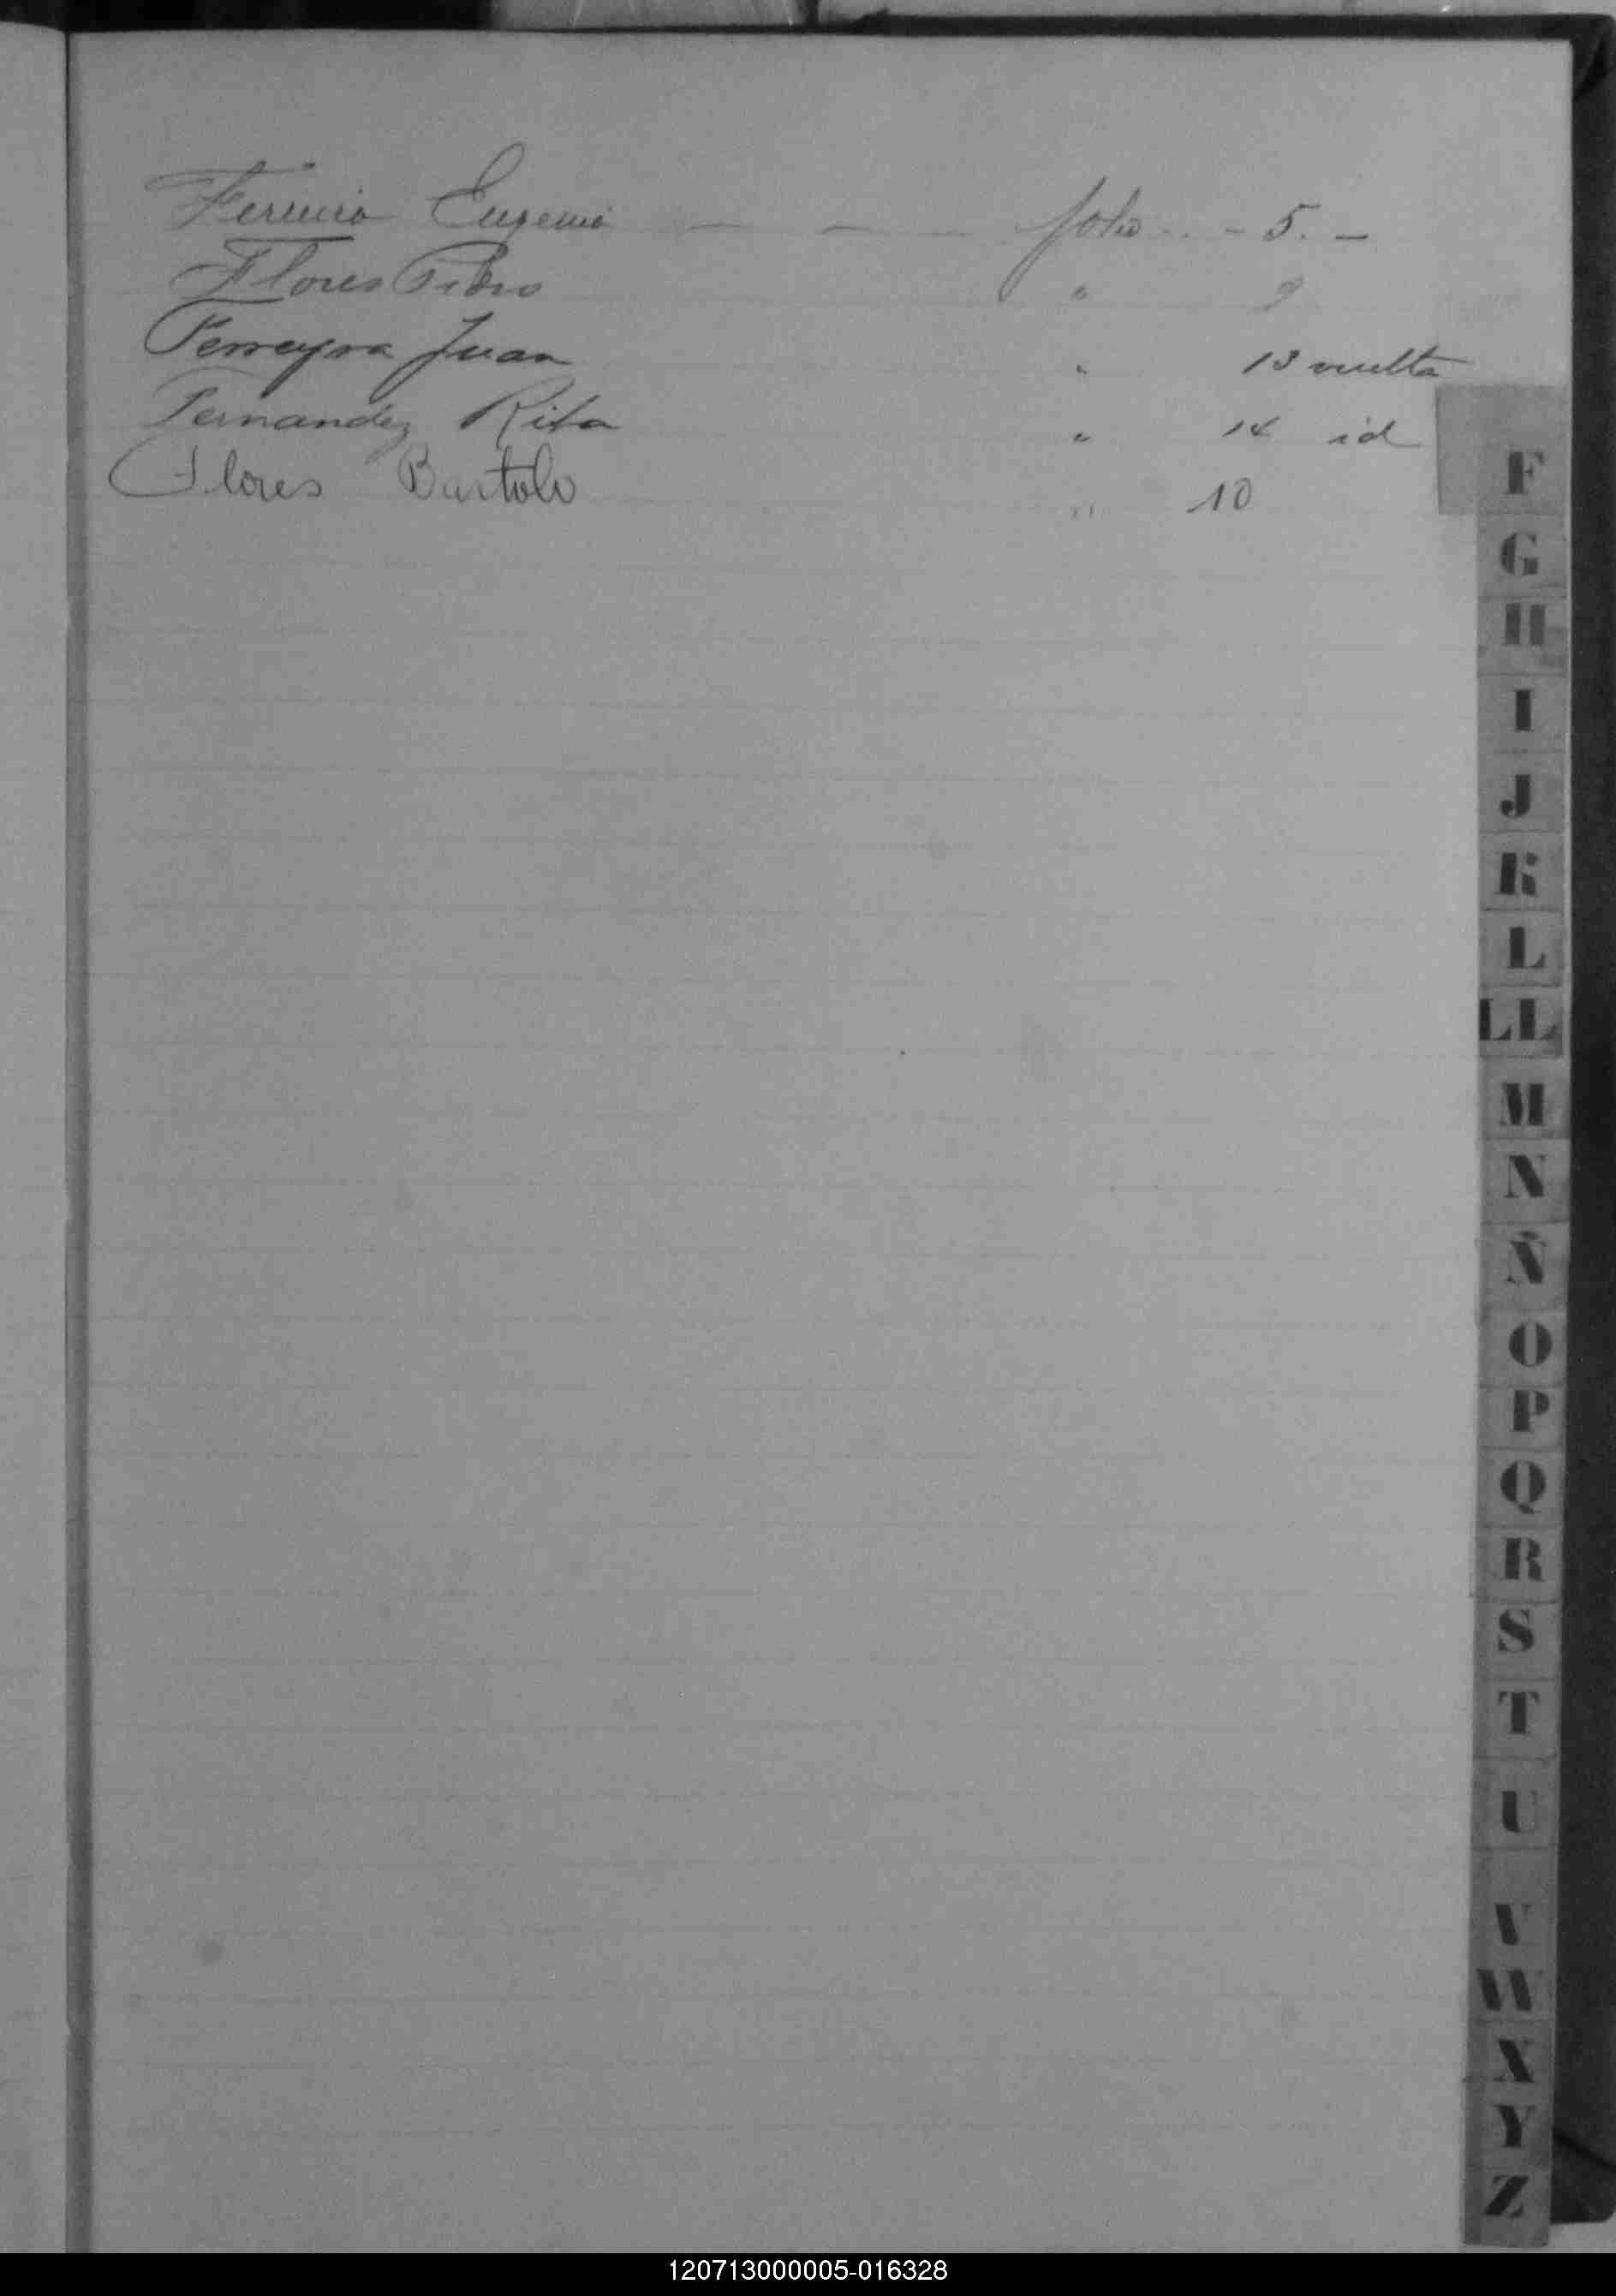 Ferreira Eugenio — — — folio - 5. -
Flores Pedro " 9
Ferreyra Juan " 13 vuelta
Fernandez Rita " 14 id
Flores Bartolo " 10
F
G
H
I
J
K
L
LL
M
N
Ñ
O
P
Q
R
S
T
U
V
W
X
Y
Z
120713000005-016328